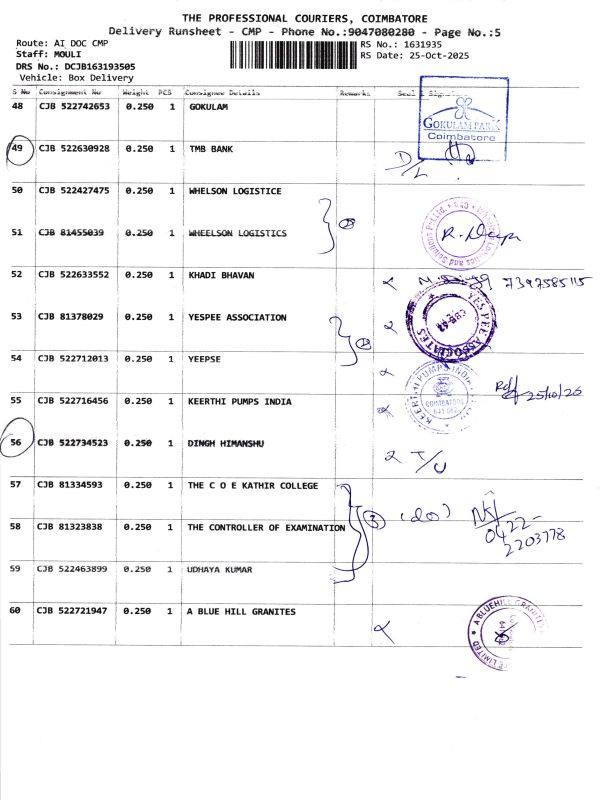 THE PROFESSIONAL COURIERS, COIMBATORE
Delivery Runsheet - CMP - Phone No.:9047080280 - Page No.:5
Route: AI DOC CMP RS No.: 1631935
Staff: MOULI RS Date: 25-Oct-2025
DRS No.: DCJB163193505
Vehicle: Box Delivery
S No Consignment No Weight PCS Consignee Details Remarks Seal & Signature
48 CJB 522742653 0.250 1 GOKULAM
GOKULAM PARK
Coimbatore
49 CJB 522630928 0.250 1 TMB BANK
D/L
50 CJB 522427475 0.250 1 WHELSON LOGISTICE
51 CJB 81455039 0.250 1 WHEELSON LOGISTICS
52 CJB 522633552 0.250 1 KHADI BHAVAN
7397585115
53 CJB 81378029 0.250 1 YESPEE ASSOCIATION
YES PEE ASSOCIATES
54 CJB 522712013 0.250 1 YEEPSE
55 CJB 522716456 0.250 1 KEERTHI PUMPS INDIA
KEERTHI PUMPS INDIA
COIMBATORE
25/10/25
56 CJB 522734523 0.250 1 DINGH HIMANSHU
T/U
57 CJB 81334593 0.250 1 THE C O E KATHIR COLLEGE
58 CJB 81323838 0.250 1 THE CONTROLLER OF EXAMINATION
3
0422-
2203778
59 CJB 522463899 0.250 1 UDHAYA KUMAR
60 CJB 522721947 0.250 1 A BLUE HILL GRANITES
A BLUEHILL GRANITES
LIMITED